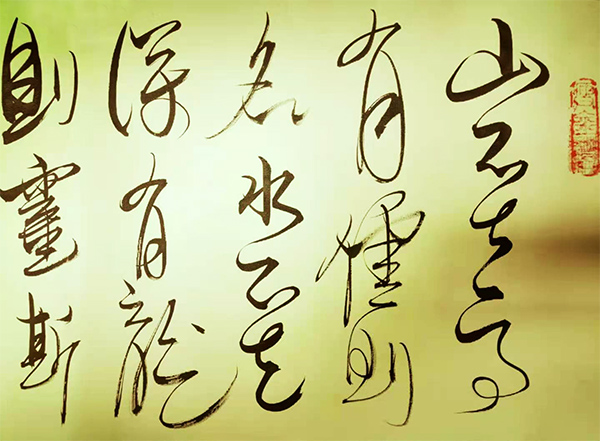 山不在高
有僊則
名水不在
深有龍
則靈斯